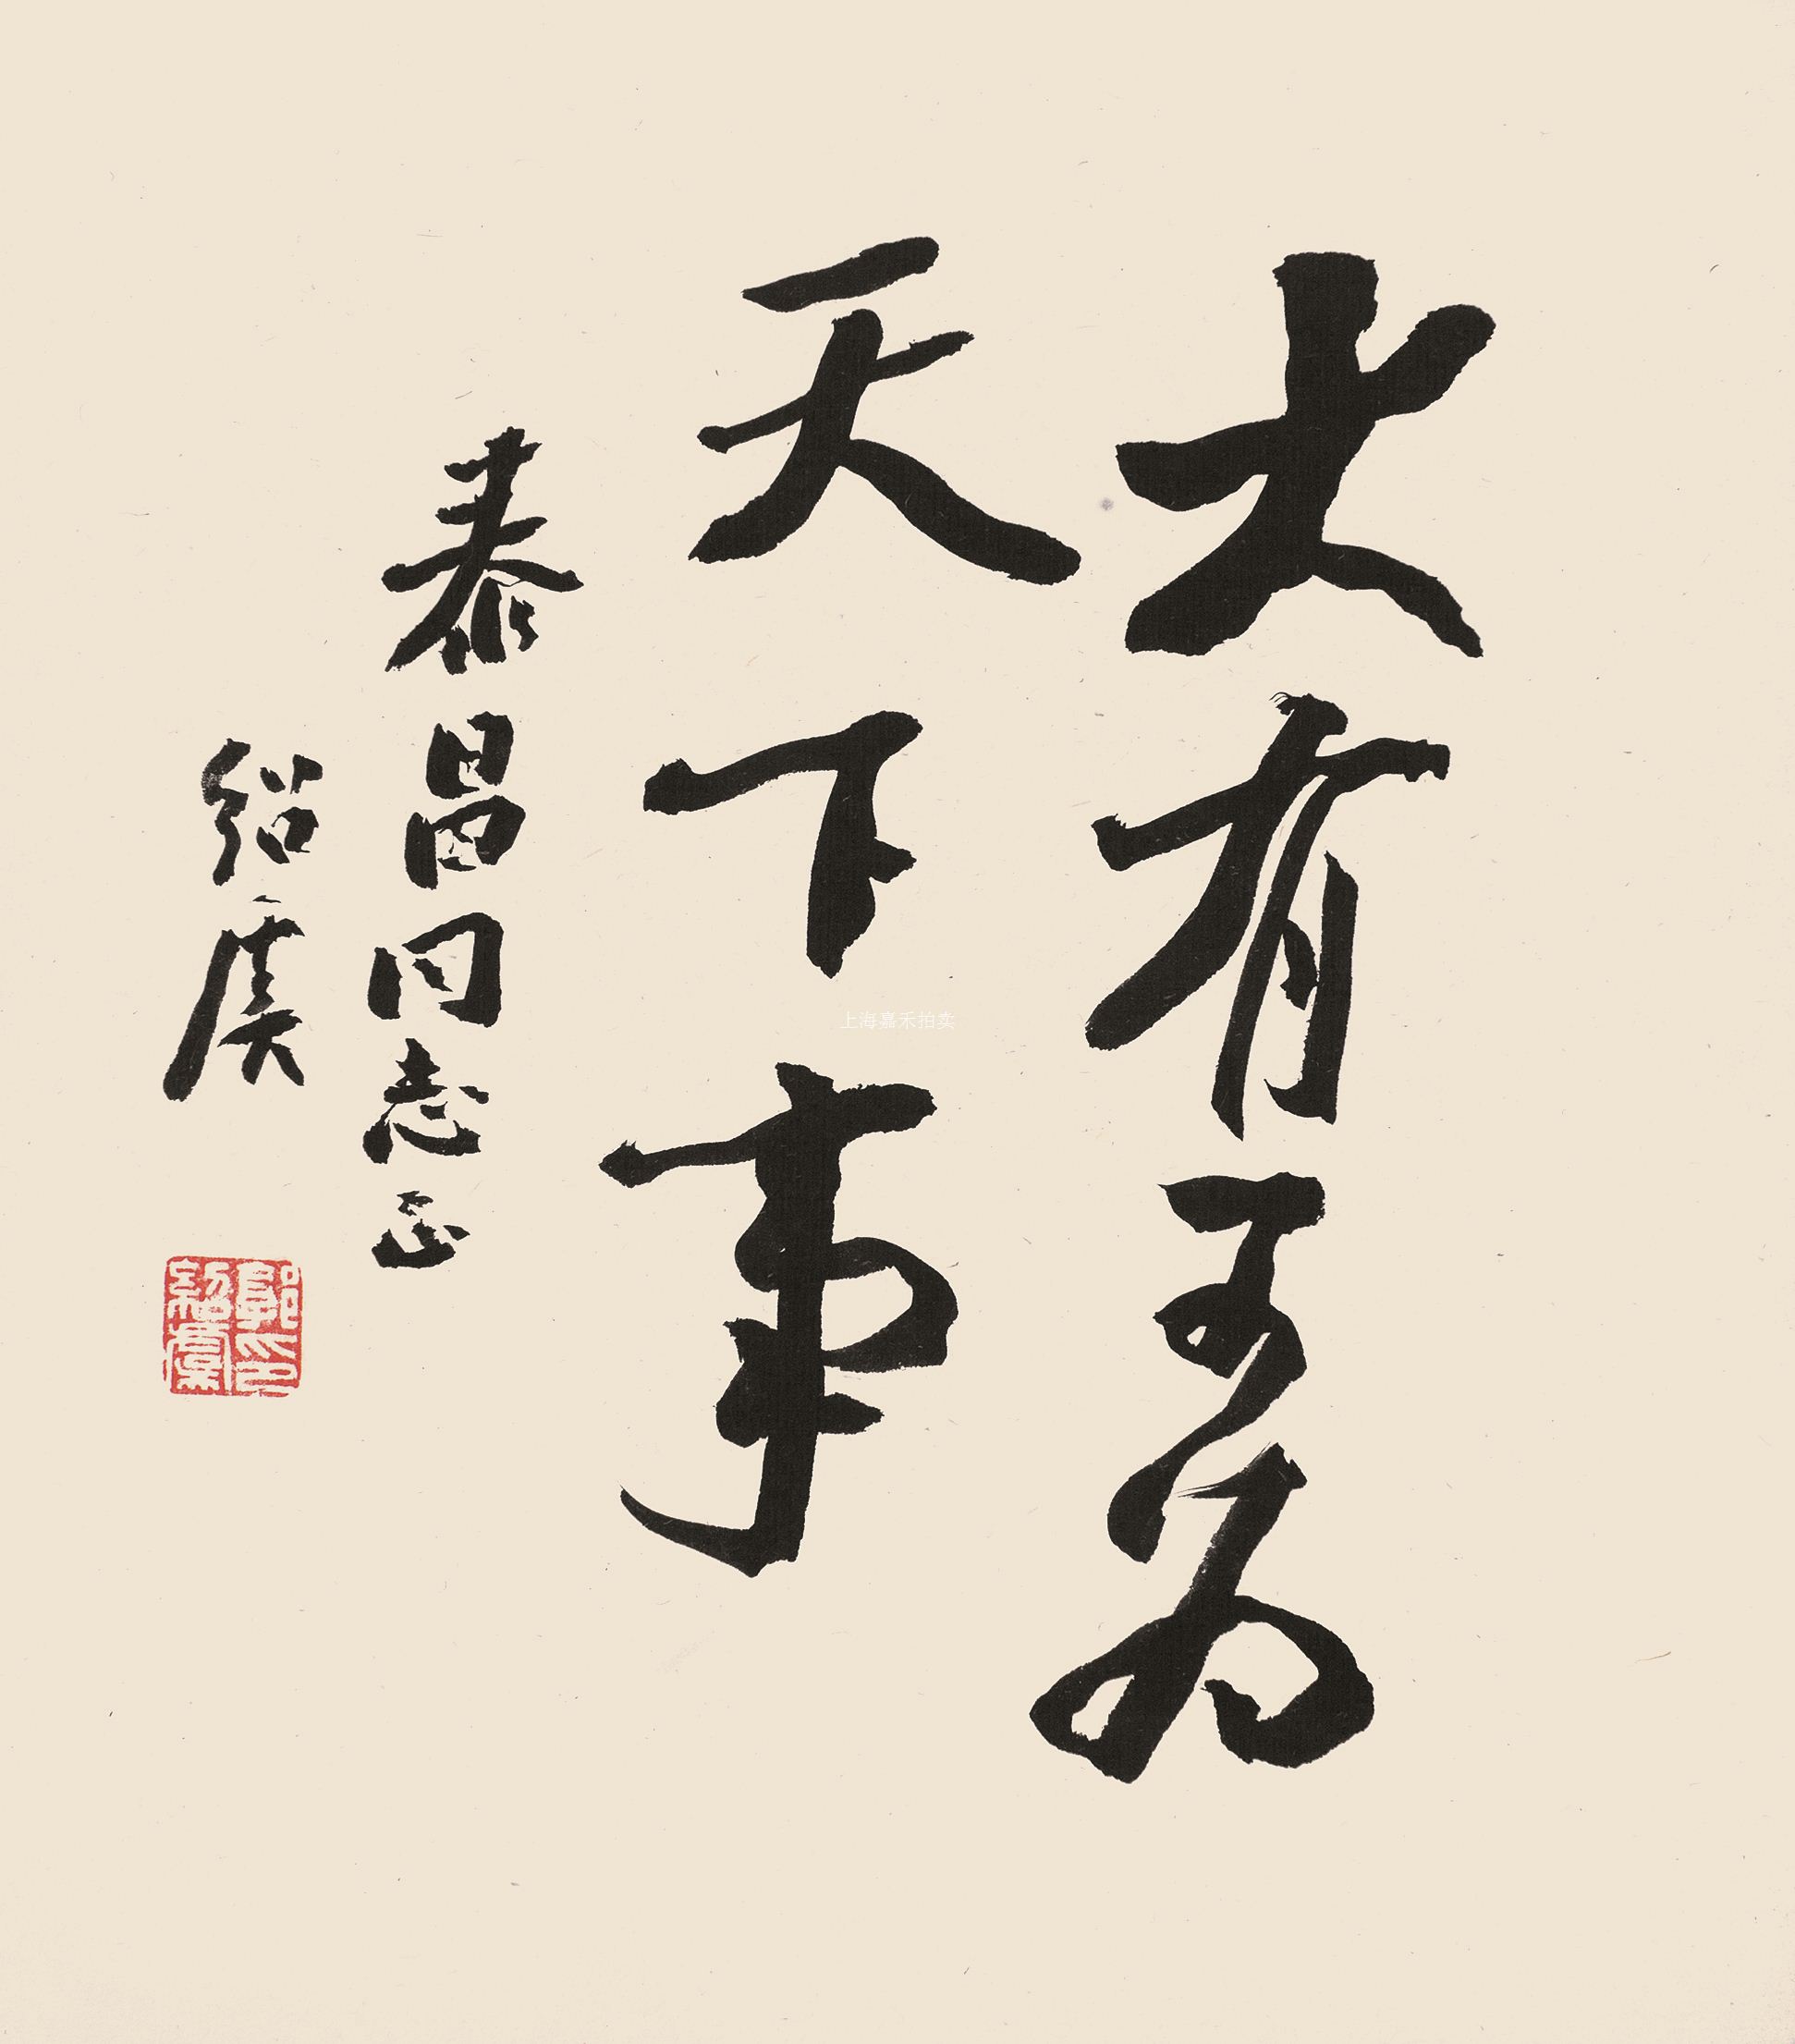 大有可为
天下事
泰昌同志正
绍虞
郭印绍虞
上海嘉禾拍卖